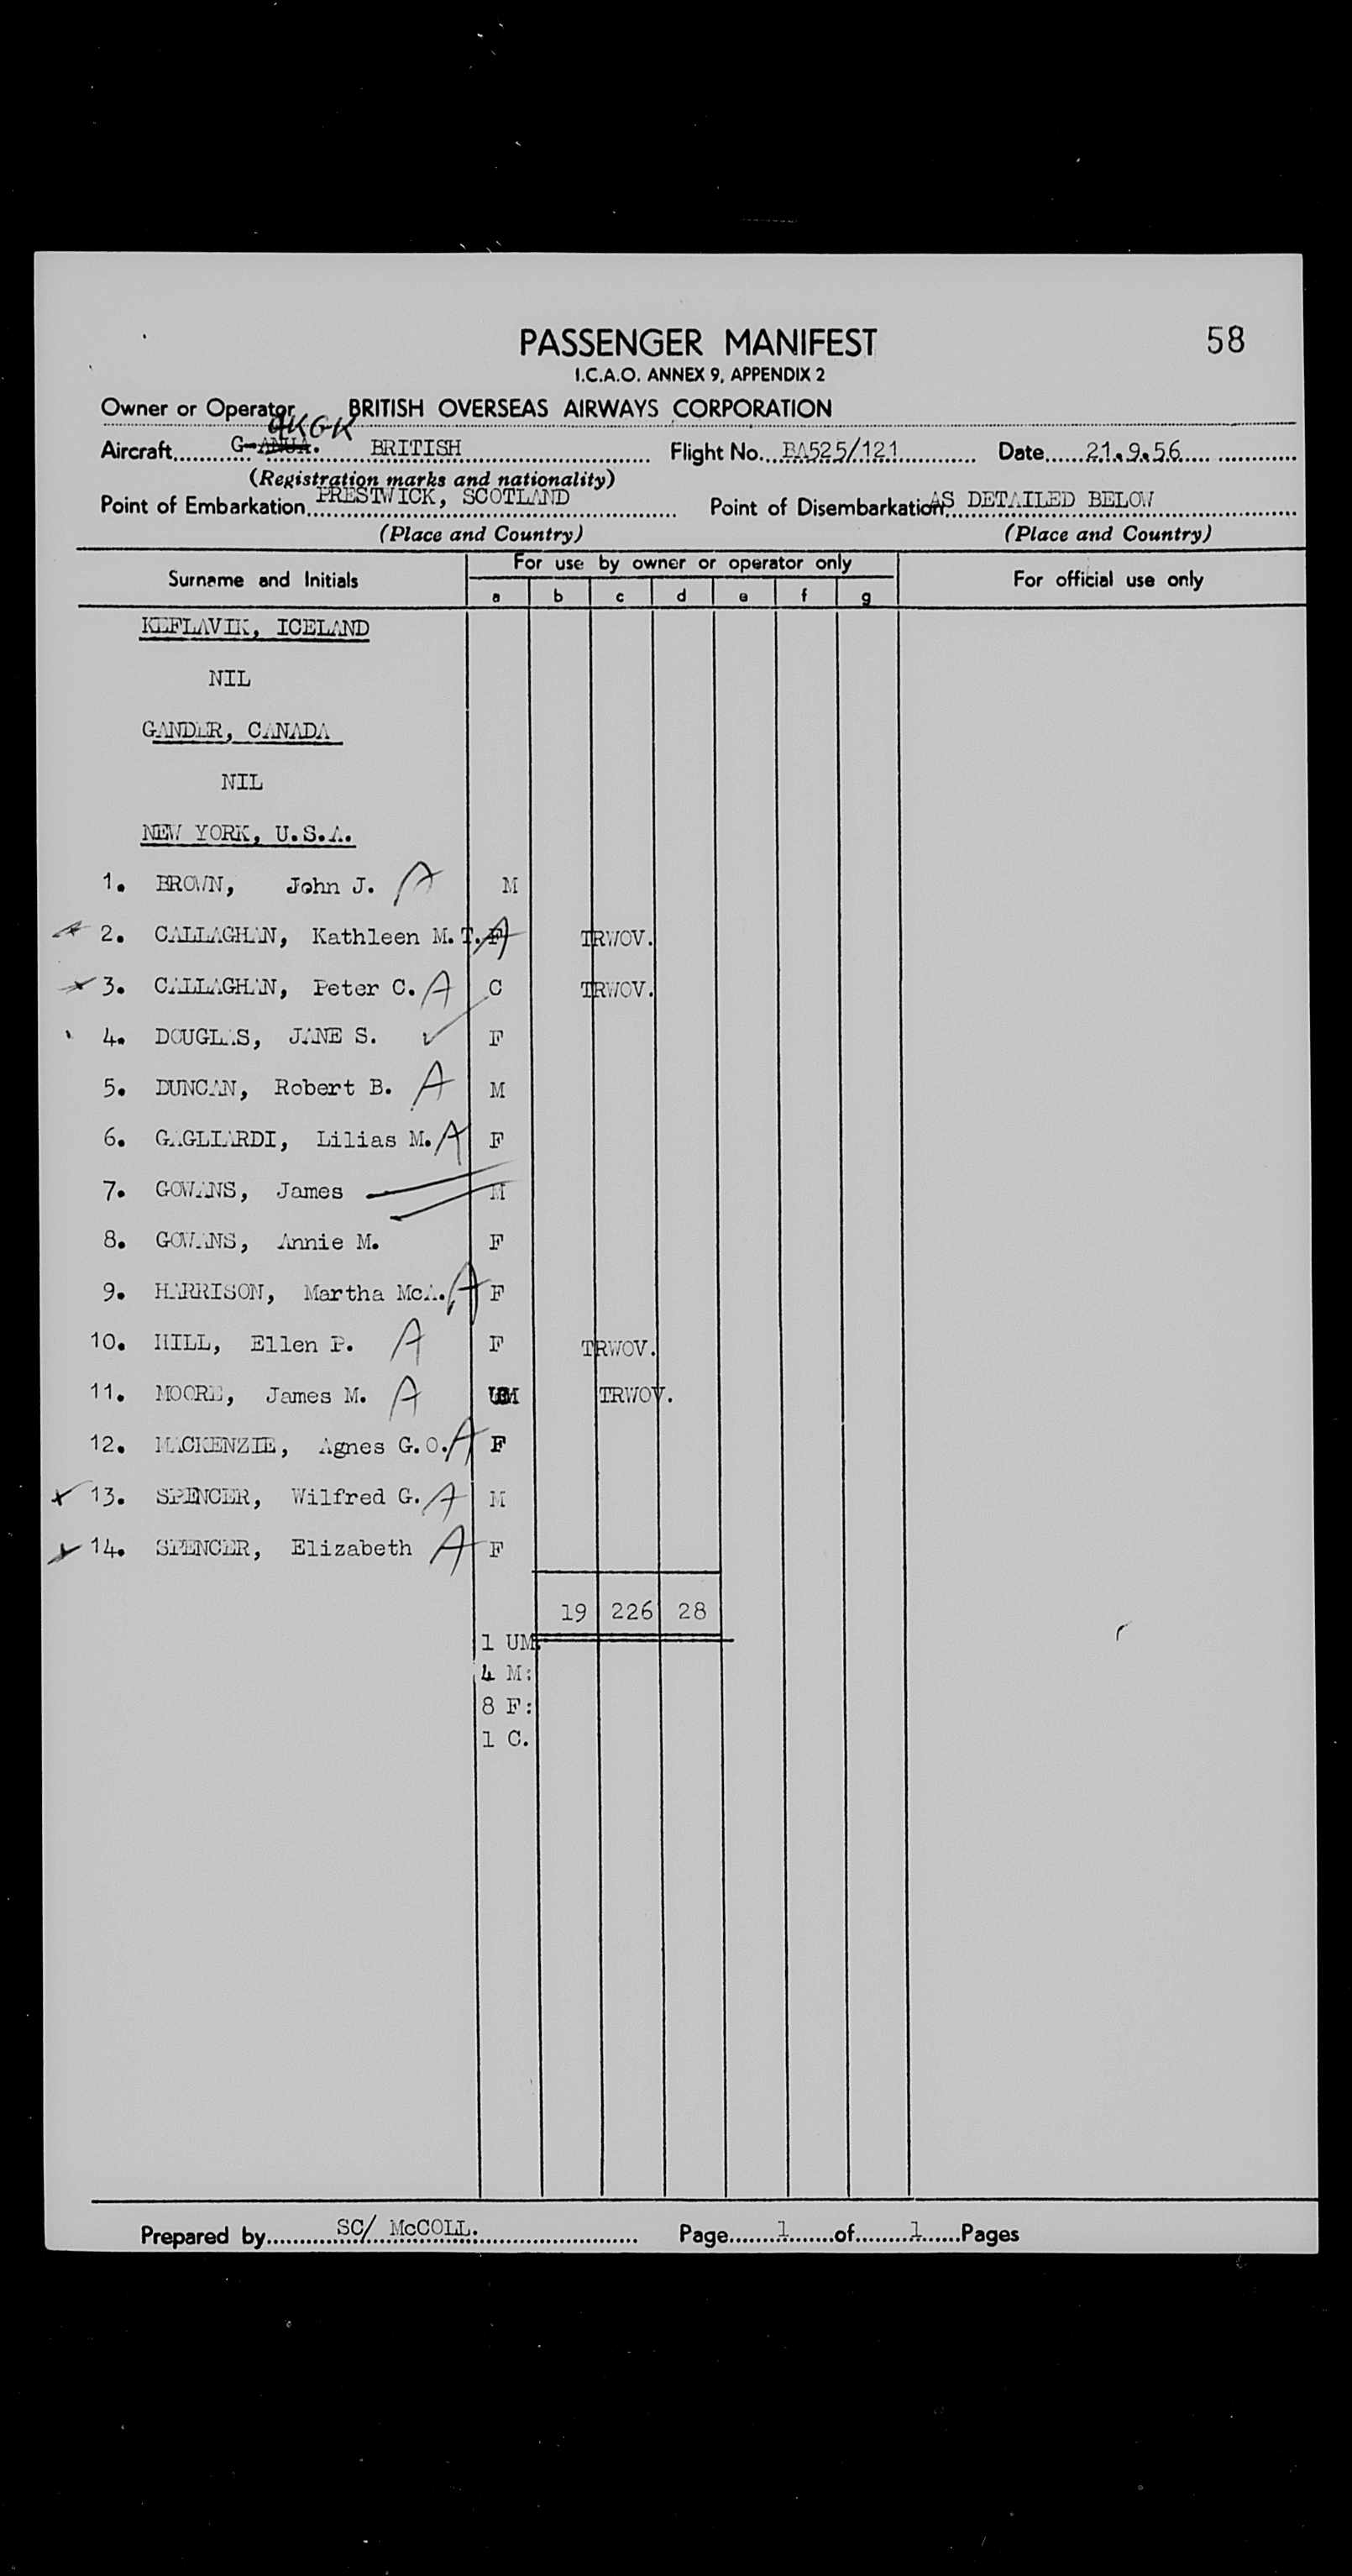 PASSENGER MANIFEST 58
I.C.A.O. ANNEX 9, APPENDIX 2
Owner or Operator BRITISH OVERSEAS AIRWAYS CORPORATION
AKGK
Aircraft G-ANUA. BRITISH Flight No. BA525/121 Date 21.9.56
(Registration marks and nationality)
Point of Embarkation PRESTWICK, SCOTLAND Point of Disembarkation AS DETAILED BELOW
(Place and Country) (Place and Country)
Surname and Initials For use by owner or operator only For official use only
a b c d e f g
KEFLAVIK, ICELAND
NIL
GANDER, CANADA
NIL
NEW YORK, U.S.A.
1. BROWN, John J. A M
2. CALLAGHAN, Kathleen M.T. A F TRWOV.
3. CALLAGHAN, Peter C. A C TRWOV.
4. DOUGLAS, JANE S. F
5. DUNCAN, Robert B. A M
6. GAGLIARDI, Lilias M. A F
7. GOWANS, James M
8. GOWANS, Annie M. F
9. HARRISON, Martha McA. A F
10. HILL, Ellen P. A F TRWOV.
11. MOORE, James M. A UM TRWOV.
12. MACKENZIE, Agnes G.O. A F
13. SPENCER, Wilfred G. A M
14. SPENCER, Elizabeth A F
19 226 28
1 UM
4 M:
8 F:
1 C.
Prepared by SC/ McCOLL. Page 1 of 1 Pages